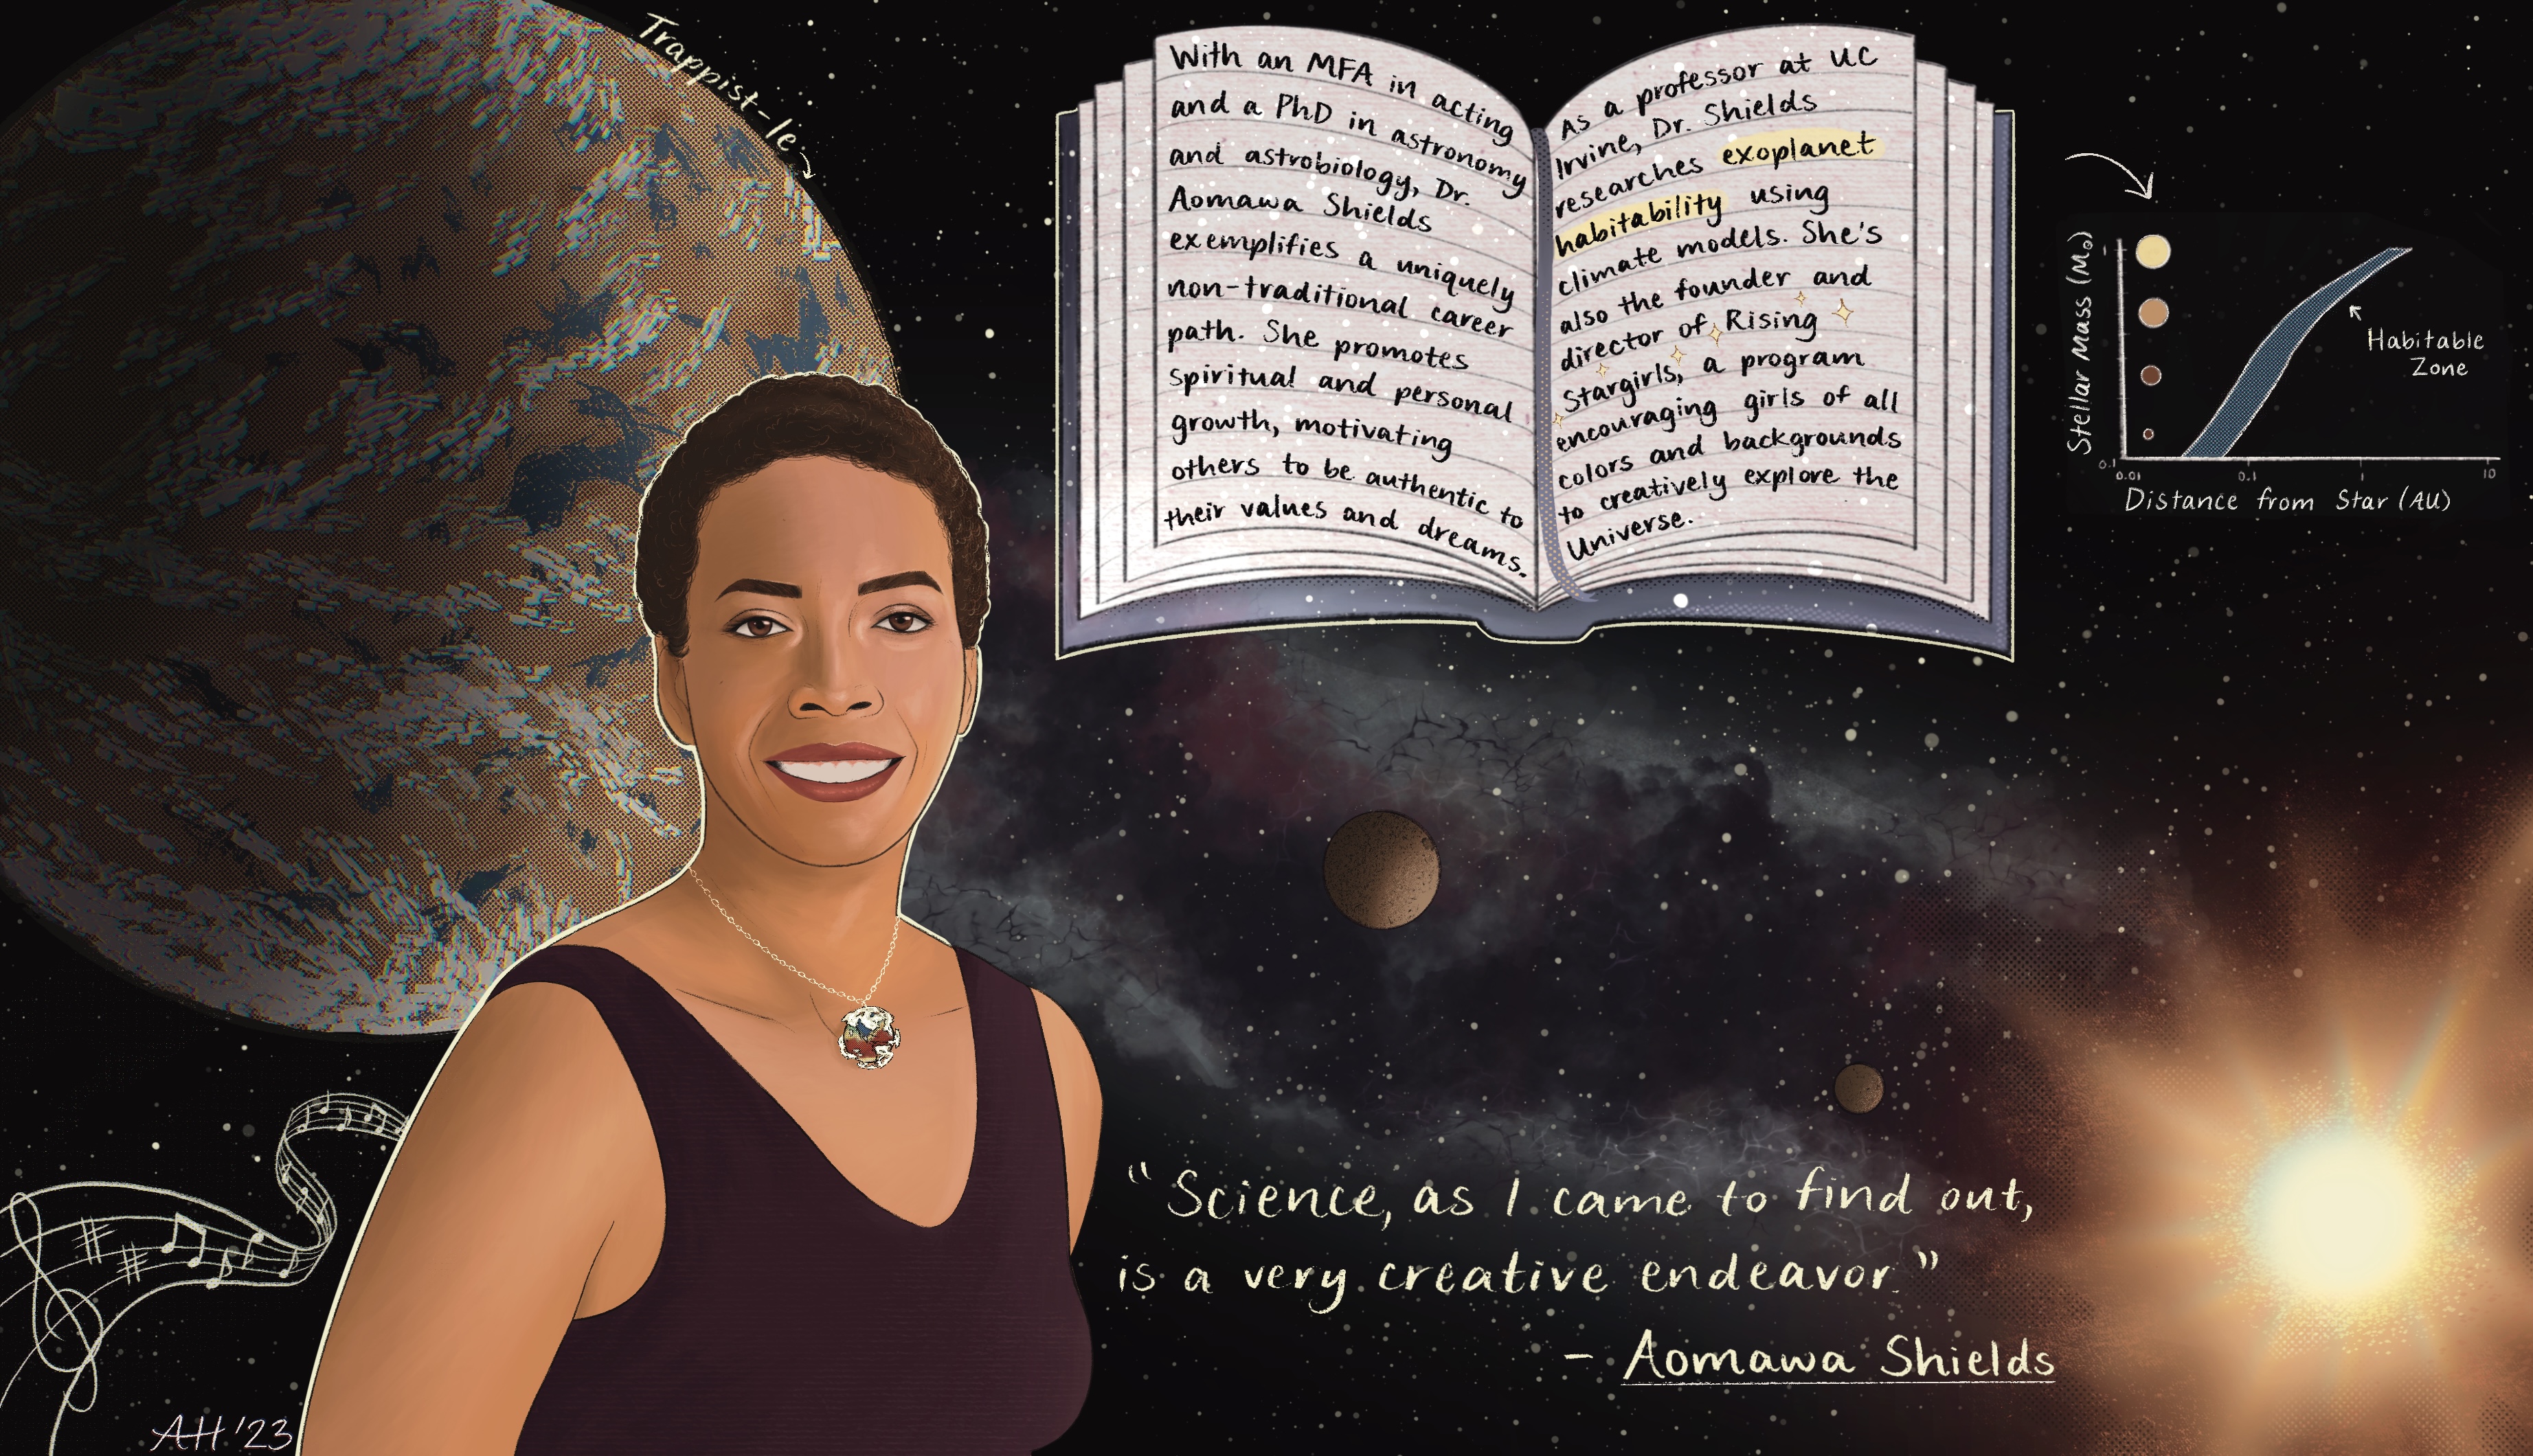 Trappist-1e
With an MFA in acting
and a PhD in astronomy
and astrobiology, Dr.
Aomawa Shields
exemplifies a uniquely
non-traditional career
path. She promotes
spiritual and personal
growth, motivating
others to be authentic to
their values and dreams.
As a professor at UC
Irvine, Dr. Shields
researches exoplanet
habitability using
climate models. She's
also the founder and
director of Rising
Stargirls, a program
encouraging girls of all
colors and backgrounds
to creatively explore the
Universe.
Stellar Mass (M☉)
1
0.1
Habitable
Zone
0.01 0.1 1 10
Distance from Star (AU)
"Science, as I came to find out,
is a very creative endeavor."
- Aomawa Shields
AH '23